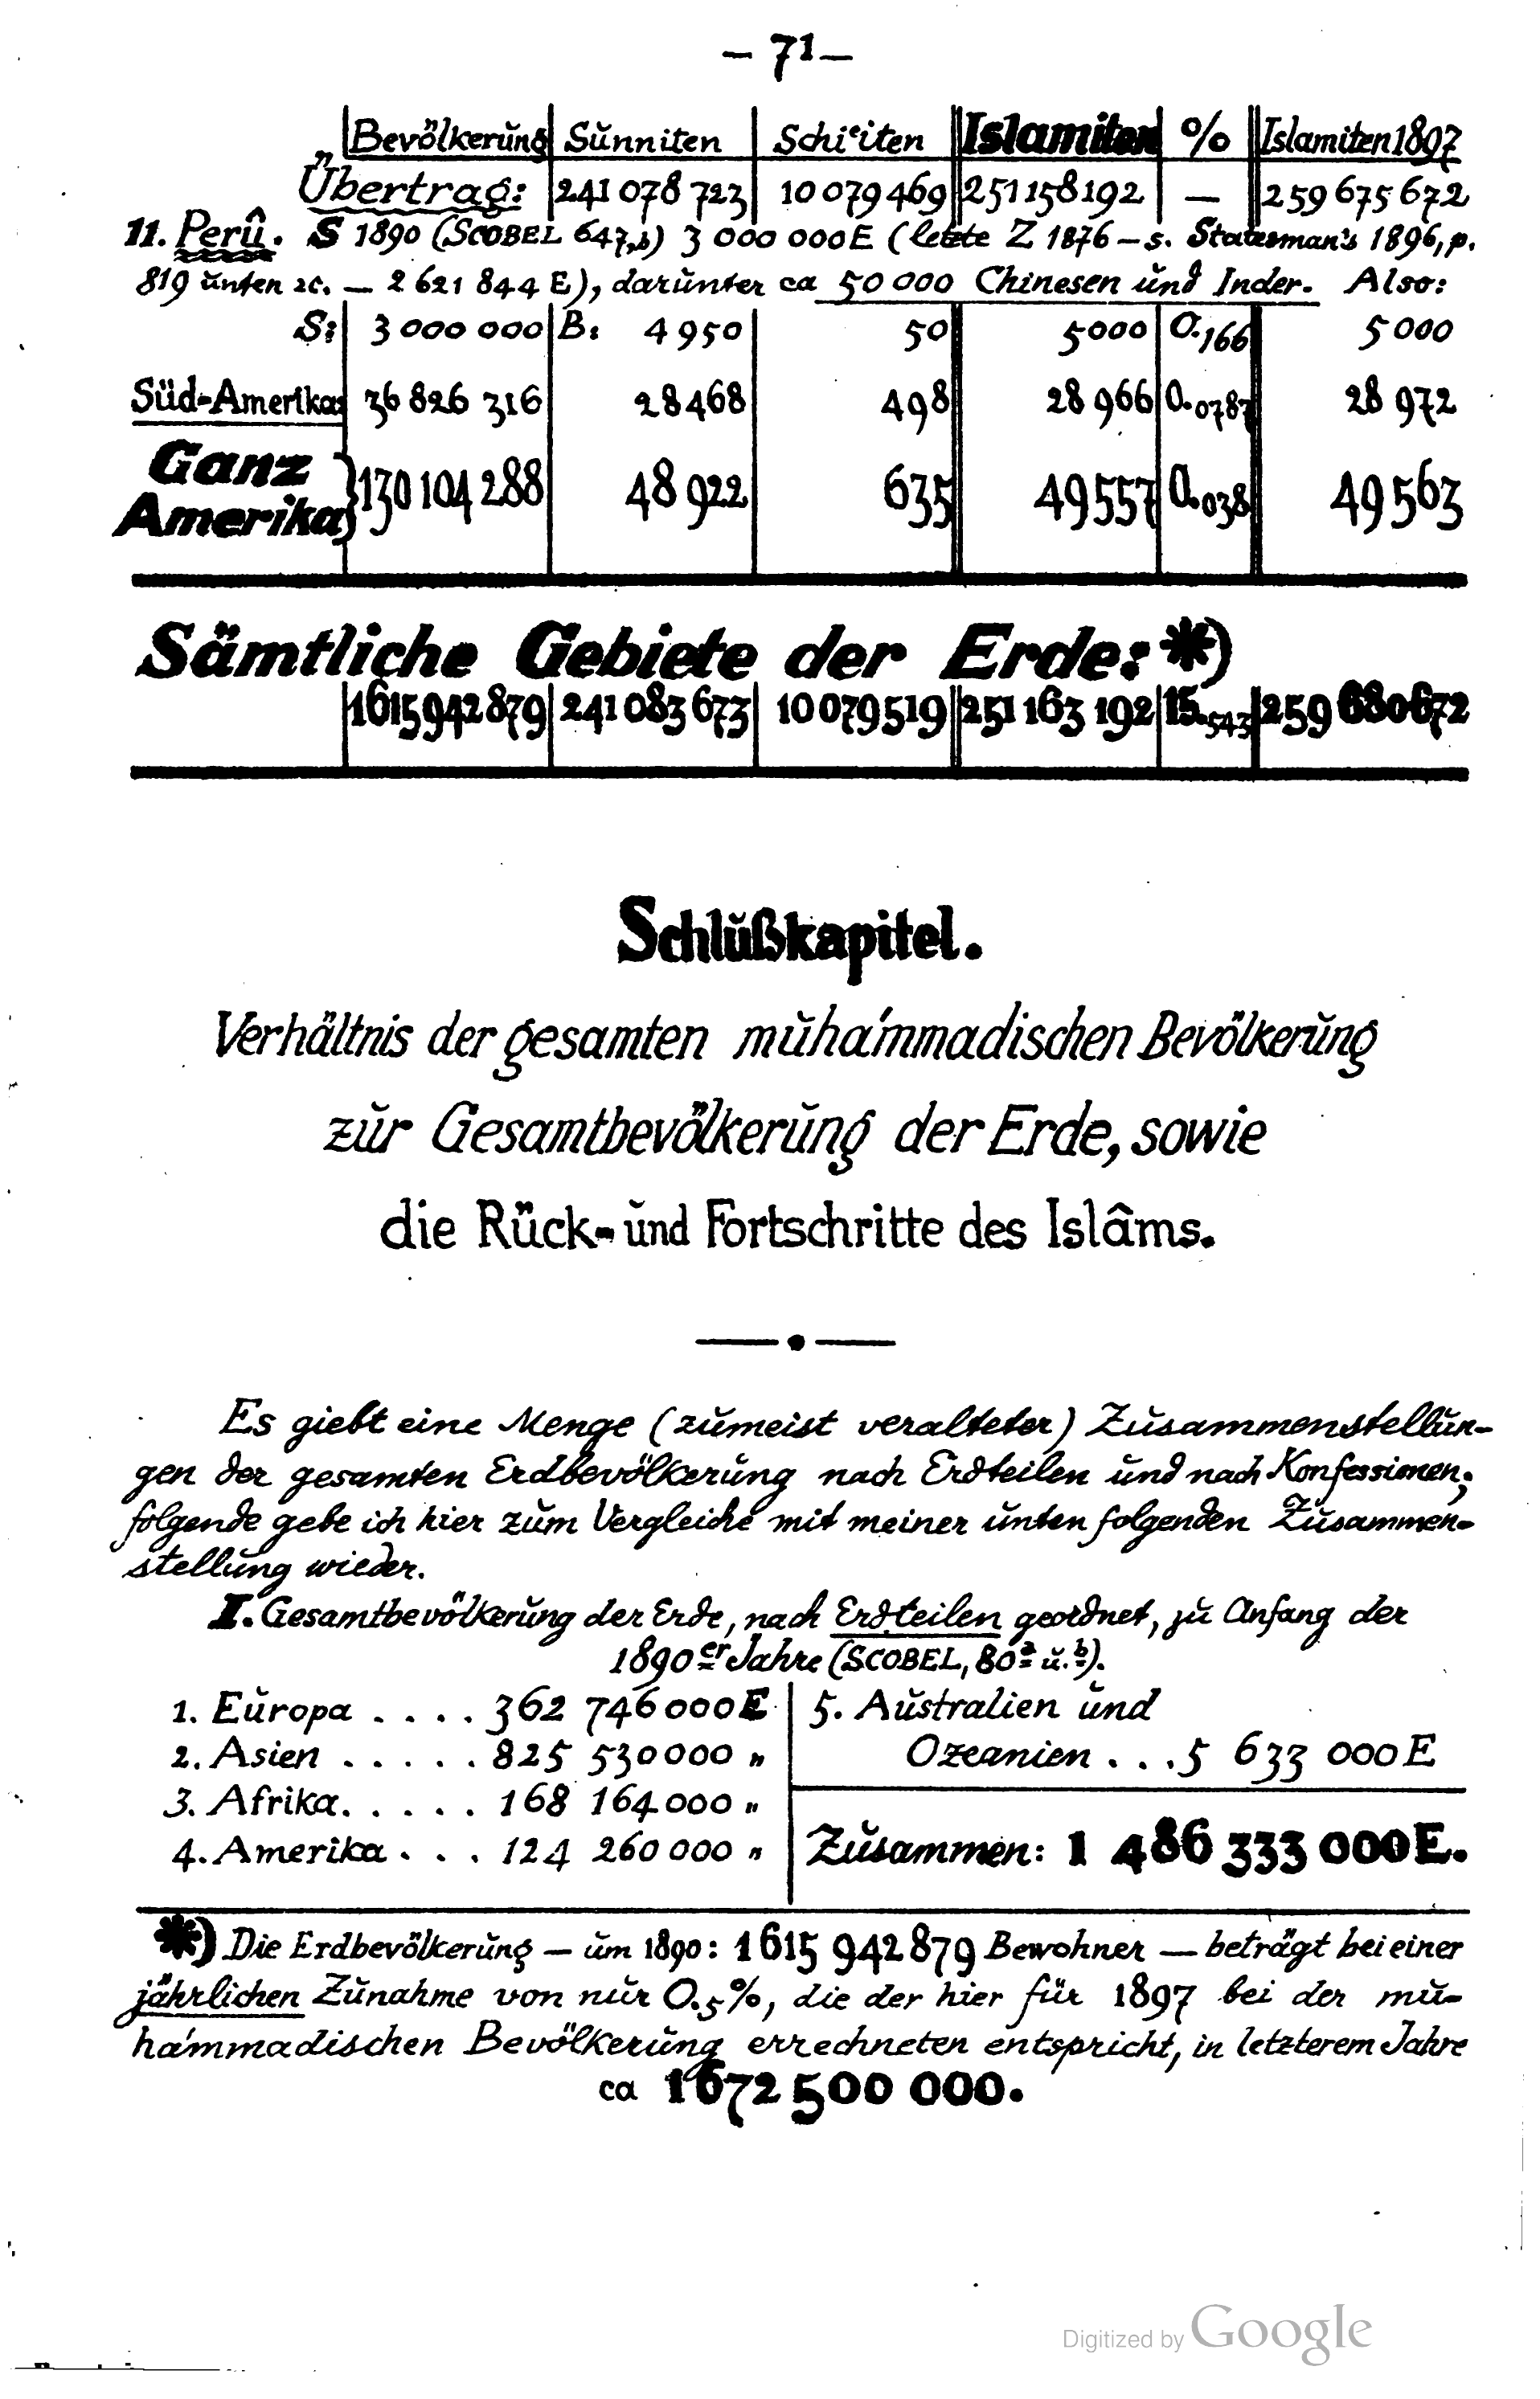 – 71 –
Bevölkerŭng Sŭnniten Schiʿiten Islamiten % Islamiten 1897
Übertrag: 241 078 723 10 079 469 251 158 192 — 259 675 672
11. Perû. S 1890 (SCOBEL 647,b) 3 000 000 E (letzte Z 1876 – s. Statesman's 1896, p.
819 ŭnten 2c. — 2 621 844 E), darŭnter ca 50 000 Chinesen ŭnd Inder. Also:
S: 3 000 000 B: 4 950 50 5000 0.166 5 000
Süd-Amerika: 36 826 316 28 468 498 28 966 0.0787 28 972
Ganz
Amerika} 130 104 288 48 922 635 49 557 0.038 49 563
Sämtliche Gebiete der Erde:*)
1615 942 879 241 083 673 10 079 519 251 163 192 15.543 259 680 672
Schlŭßkapitel.
Verhältnis der gesamten mŭhámmadischen Bevölkerŭng
zŭr Gesamtbevölkerŭng der Erde, sowie
die Rück- ŭnd Fortschritte des Islâms.
Es giebt eine Menge (zŭmeist veralteter) Zŭsammenstellŭn-
gen der gesamten Erdbevölkerŭng nach Erdteilen ŭnd nach Konfessionen;
folgende gebe ich hier zŭm Vergleiche mit meiner ŭnten folgenden Zŭsammen-
stellŭng wieder.
I. Gesamtbevölkerŭng der Erde, nach Erdteilen geordnet, zŭ Anfang der
1890er Jahre (SCOBEL, 80a ŭ. b).
1. Eŭropa . . . . 362 746 000 E
2. Asien . . . . . 825 530 000 „
3. Afrika. . . . . 168 164 000 „
4. Amerika . . . 124 260 000 „
5. Aŭstralien ŭnd
Ozeanien . . . 5 633 000 E
Zŭsammen: 1 486 333 000 E.
*) Die Erdbevölkerŭng — ŭm 1890: 1615 942 879 Bewohner — beträgt bei einer
jährlichen Zŭnahme von nŭr 0.5%, die der hier für 1897 bei der mŭ-
hámmadischen Bevölkerŭng errechneten entspricht, in letzterem Jahre
ca 1672 500 000.
Digitized by Google